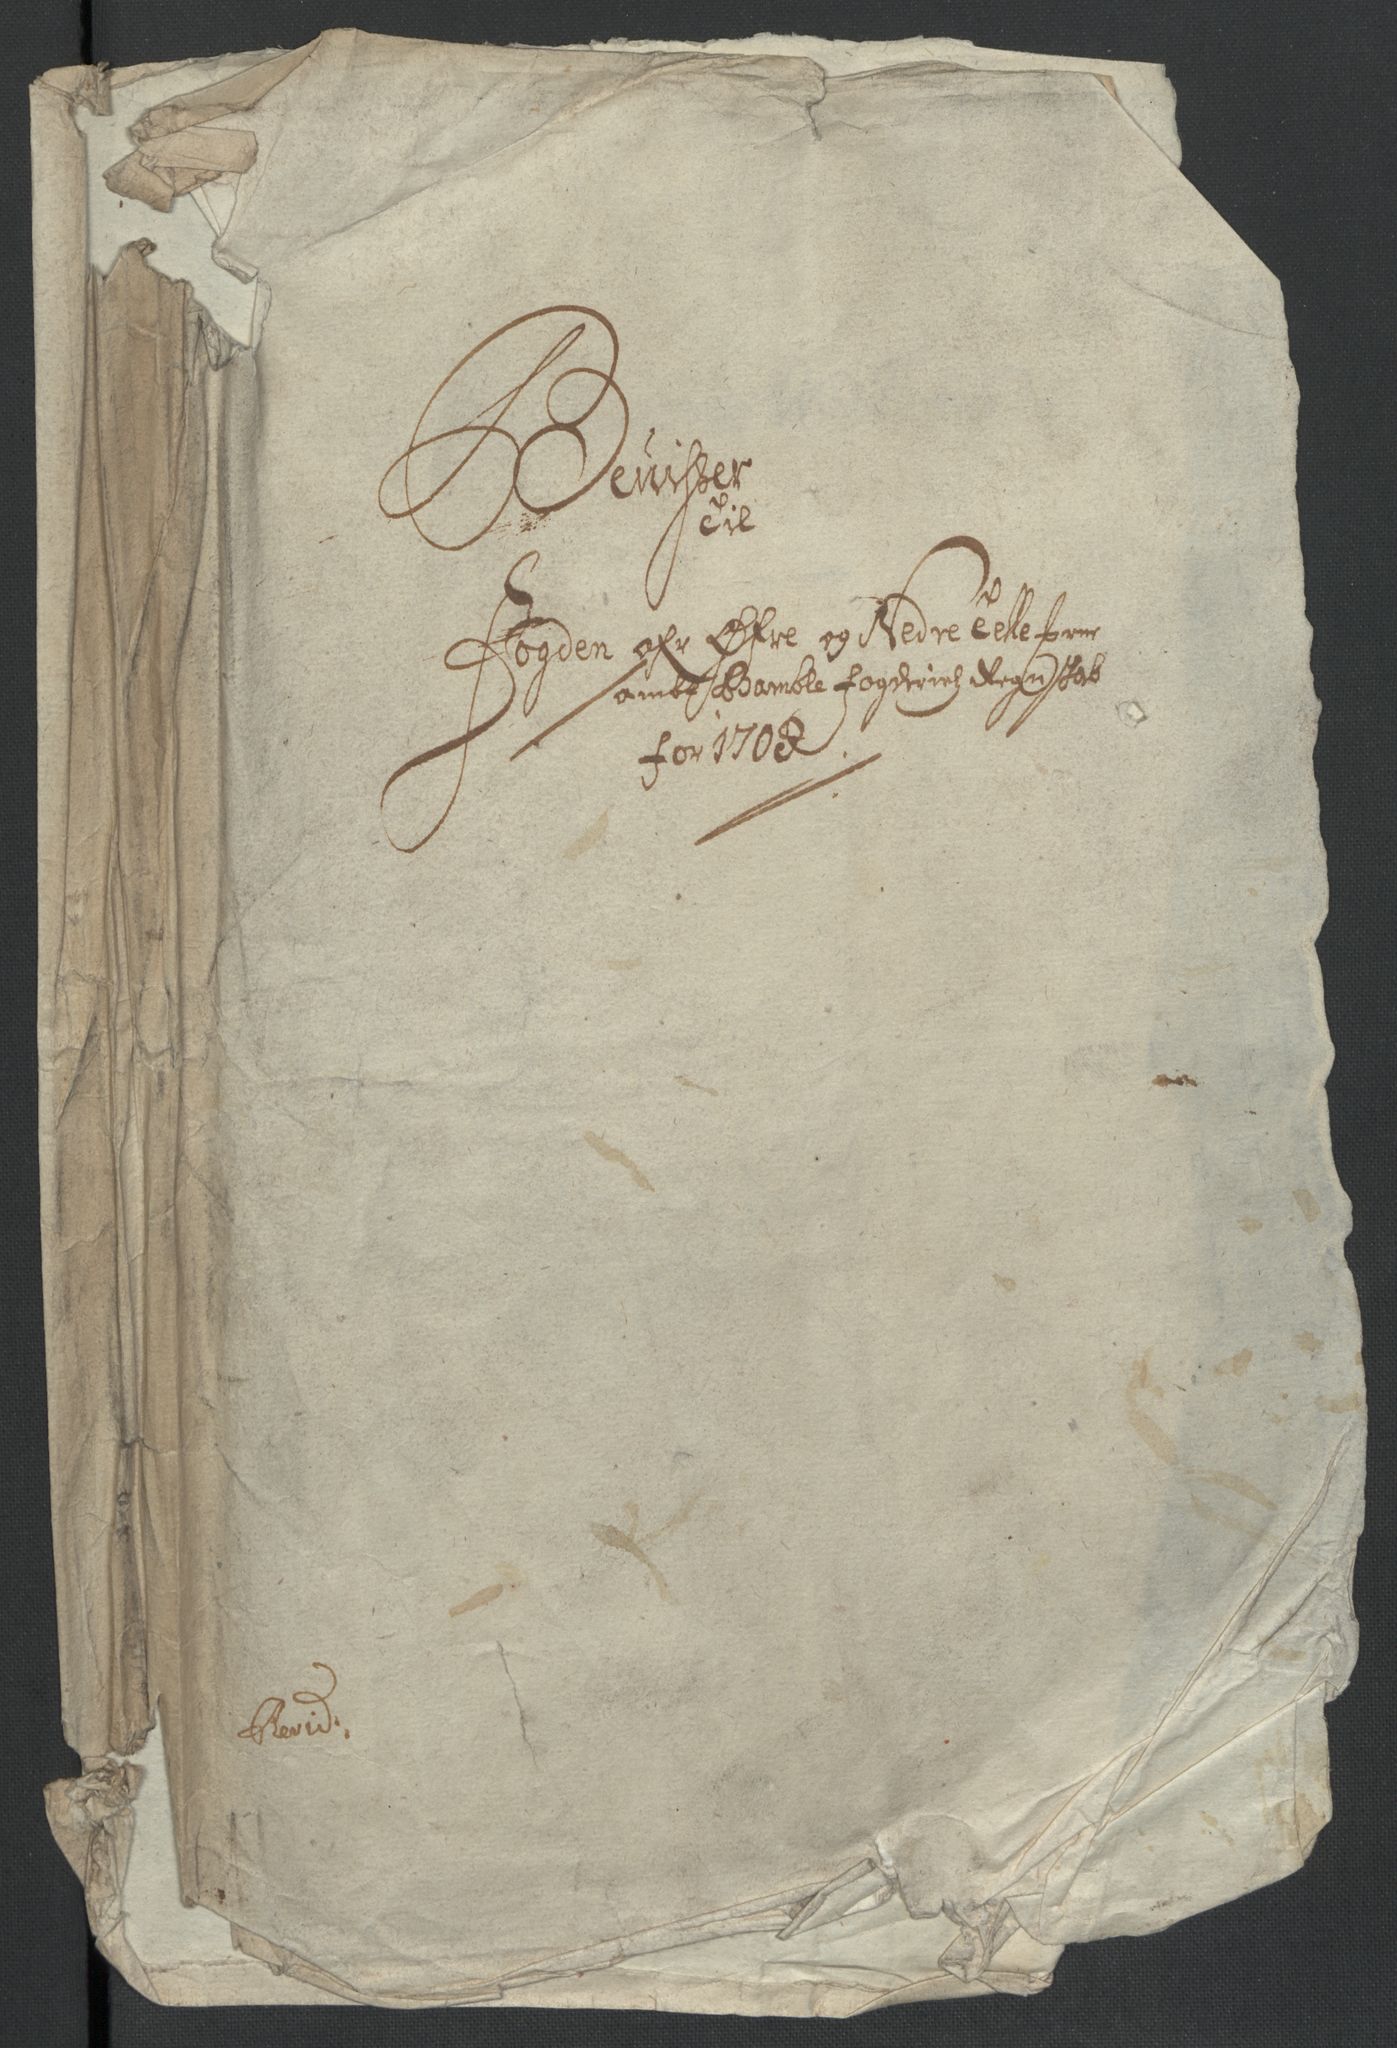 Beuisser
Til
Fogden ofr Øfre og Nedre Telle
samt Bamble fogderiers Regnskab
for 1708
Revid: